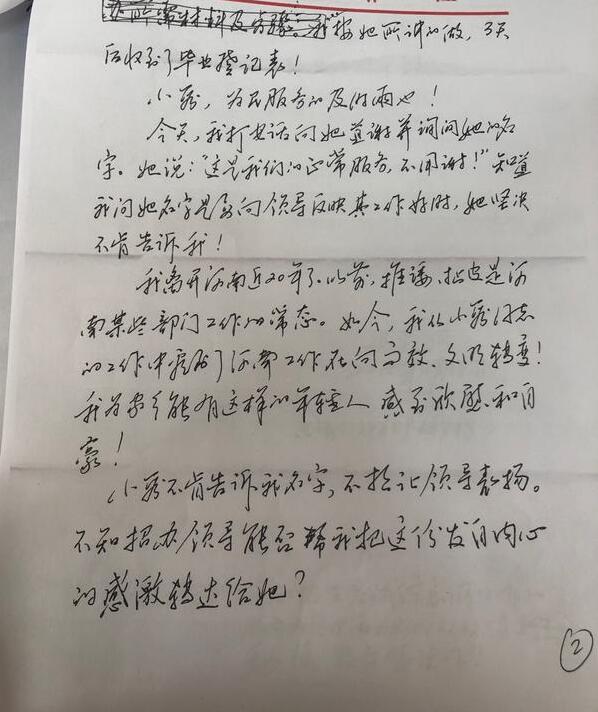 办所需材料及步骤。我按她所讲的做，3天
后收到了毕业登记表！
小骆，为民服务的及时雨也！
今天，我打电话向她道谢并询问她的名
字。她说：“这是我们的正常服务，不用谢！”知道
我问她名字是为向领导反映其工作好时，她坚决
不肯告诉我！
我离开河南近20年了。以前，推诿、扯皮是河
南某些部门工作的常态。如今，我从小骆同志
的工作中看到了河南工作在向高效、文明转变！
我为家乡能有这样的年轻人感到欣慰和自
豪！
小骆不肯告诉我名字，不想让领导表扬。
不知招办领导能否帮我把这份发自内心
的感激转达给她？
2